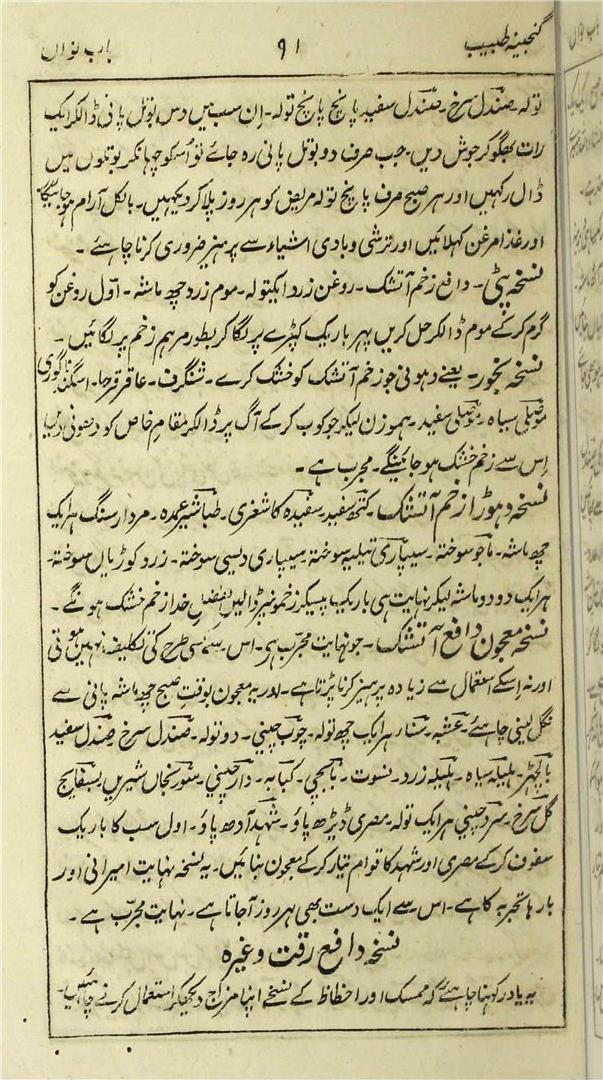 گنجینہ طبیب ۹۱ باب نواں
تولہ۔ صندل سرخ۔ صندل سفید پانچ پانچ تولہ۔ اِن سب میں دس بوتل پانی ڈالکر ایک
رات بھگو کر جوش دیں۔ جب صرف دو بوتل پانی رہ جائے تو اُسکو چہانکر بوتلوں میں
ڈال رکہیں اور ہر صبح صرف پانچ تولہ مریض کو ہر روز پلا کر دیکہیں۔ بالکل آرام ہو جائیگا
اور غذا مرغن کہلائیں اور ترشی و بادی اشیاء سے پرہیز ضروری کرنا چاہئے۔
نسخہ پٹی۔ دافع زخم آتشک۔ روغن زرد ایکتولہ۔ موم زرد چھ ماشہ۔ اوّل روغن کو
گرم کرکے موم ڈالکر حل کریں پہر باریک کپڑے پر لگا کر بطور مرہم زخم پر لگائیں۔
نسخہ بخور۔ یعنے دہونی جو زخم آتشک کو خشک کرے۔ شنگرف۔ عاقرقرحا۔ اسگند ناگوری
موصلی سیاہ۔ موصلی سفید۔ ہموزن لیکر جو کوب کرکے آگ پر ڈالکر مقام خاص کو دہونی دیں
اِس سے زخم خشک ہو جائینگے۔ مجرب ہے۔
نسخہ دہوڑا زخم آتشک۔ کتھ سفید۔ سفیدہ کاشغری۔ طباشیر عمدہ۔ مردار سنگ ہر ایک
چھ ماشہ۔ ماجو سوختہ۔ سپیاری تیلیہ سوختہ۔ سپیاری دیسی سوختہ۔ زرد کوڑیاں سوختہ۔
ہر ایک دو دو ماشہ لیکر نہایت ہی باریک پیسکر زخمونپر ڈالیں بفضلِ خدا زخم خشک ہونگے۔
نسخہ معجون دافع آتشک۔ جو نہایت مجرّب ہی۔ اس سے کسی طرح کی تکلیف نہیں ہوتی
اور نہ اِسکے استعمال سے زیادہ پرہیز کرنا پڑتا ہے۔ اور یہ معجون بوقتِ صبح چھ ماشہ پانی سے
نگل لینی چاہئے۔ عشبہ۔ سناء ہر ایک چھ تولہ۔ چوب چینی۔ دو تولہ۔ صندل سرخ صندل سفید
بالچھڑ۔ ہلیلہ سیاہ۔ ہلیلہ زرد۔ نسوت۔ بابچی۔ کبابہ۔ دارچینی۔ سورنجاں شیریں۔ بسفایج
گل سرخ۔ سردچینی ہر ایک تولہ۔ مصری ڈیڑھ پاؤ۔ شہد آدھ پاؤ۔ اول سب کا باریک
سفوف کرکے مصری اور شہد کا قوام تیار کرکے معجون بنائیں۔ یہ نسخہ نہایت امیرانی اور
بارہا تجربہ کا ہے۔ اس سے ایک دست بھی ہر روز آجاتا ہے۔ نہایت مجرّب ہے۔
نسخہ دافع رقت وغیرہ
یہ یاد رکہنا چاہئے کہ ممسک اور احتظاظ کے نسخے اپنا مزاج دیکھکر استعمال کرنے چاہئیں۔